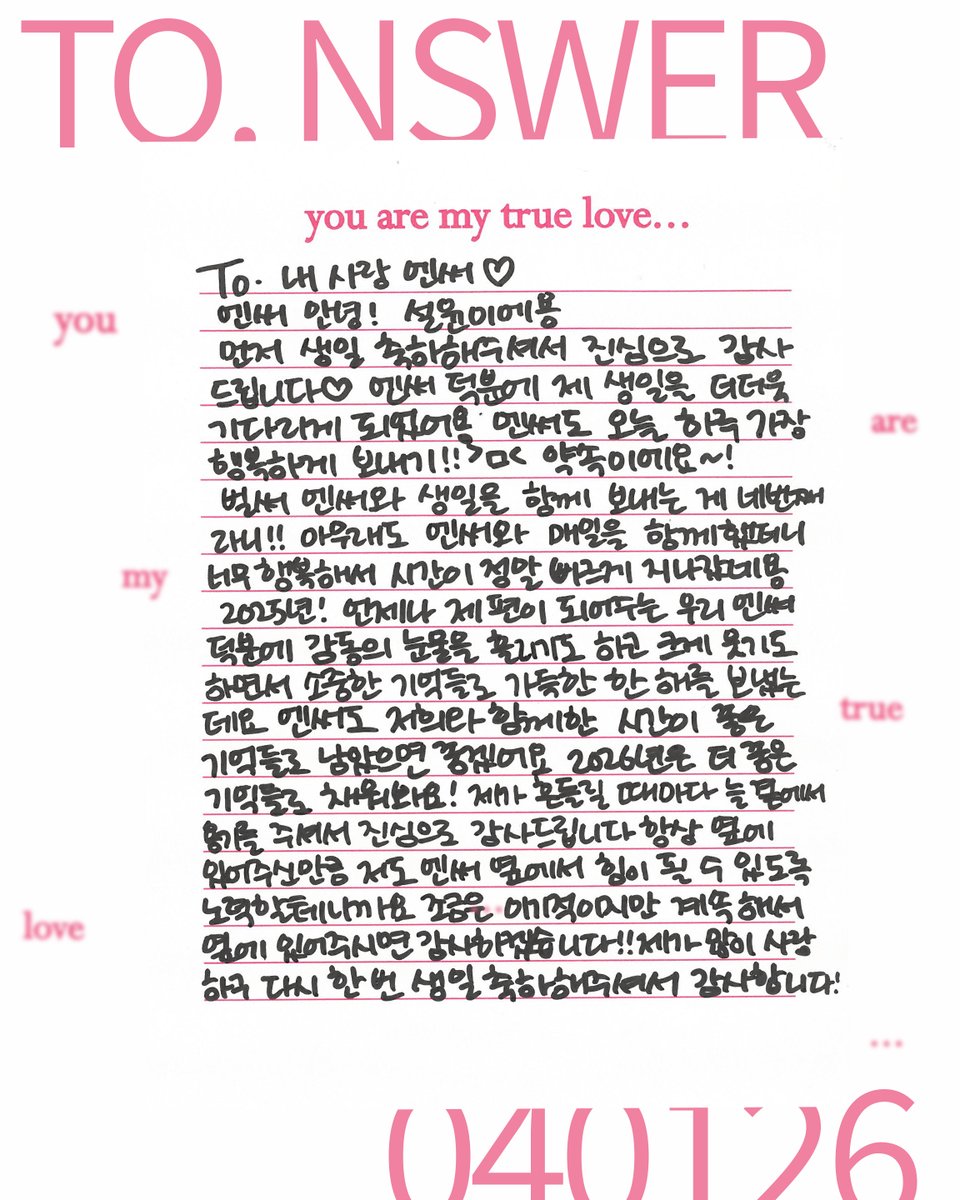 TO. NSWER
you are my true love...
To. 내 사랑 엔써 ♡
엔써 안녕! 설윤이에용
you
먼저 생일 축하해주셔서 진심으로 감사
드립니다♡ 엔써 덕분에 제 생일을 더더욱
기다리게 되었어요 엔써도 오늘 하루 가장
are
행복하게 보내기!! >ㅁ< 약속이에요~!
벌써 엔써와 생일을 함께 보내는 게 네번째
라니!! 아무래도 엔써와 매일을 함께했더니
너무 행복해서 시간이 정말 빠르게 지나갔네용
my
2025년! 언제나 제 편이 되어주는 우리 엔써
덕분에 감동의 눈물을 흘리기도 하고 크게 웃기도
하면서 소중한 기억들로 가득한 한 해를 보냈는
데요 엔써도 저희와 함께한 시간이 좋은
true
기억들로 남았으면 좋겠어요 2026년은 더 좋은
기억들로 채워봐요! 제가 흔들릴 때마다 늘 곁에서
용기를 주셔서 진심으로 감사드립니다 항상 옆에
있어주신만큼 저도 엔써 옆에서 힘이 될 수 있도록
노력할테니까요 조금은 이기적이지만 계속 해서
love
...
옆에 있어주시면 감사하겠습니다!! 제가 많이 사랑
하구 다시 한번 생일 축하해주셔서 감사합니다!
...
040126